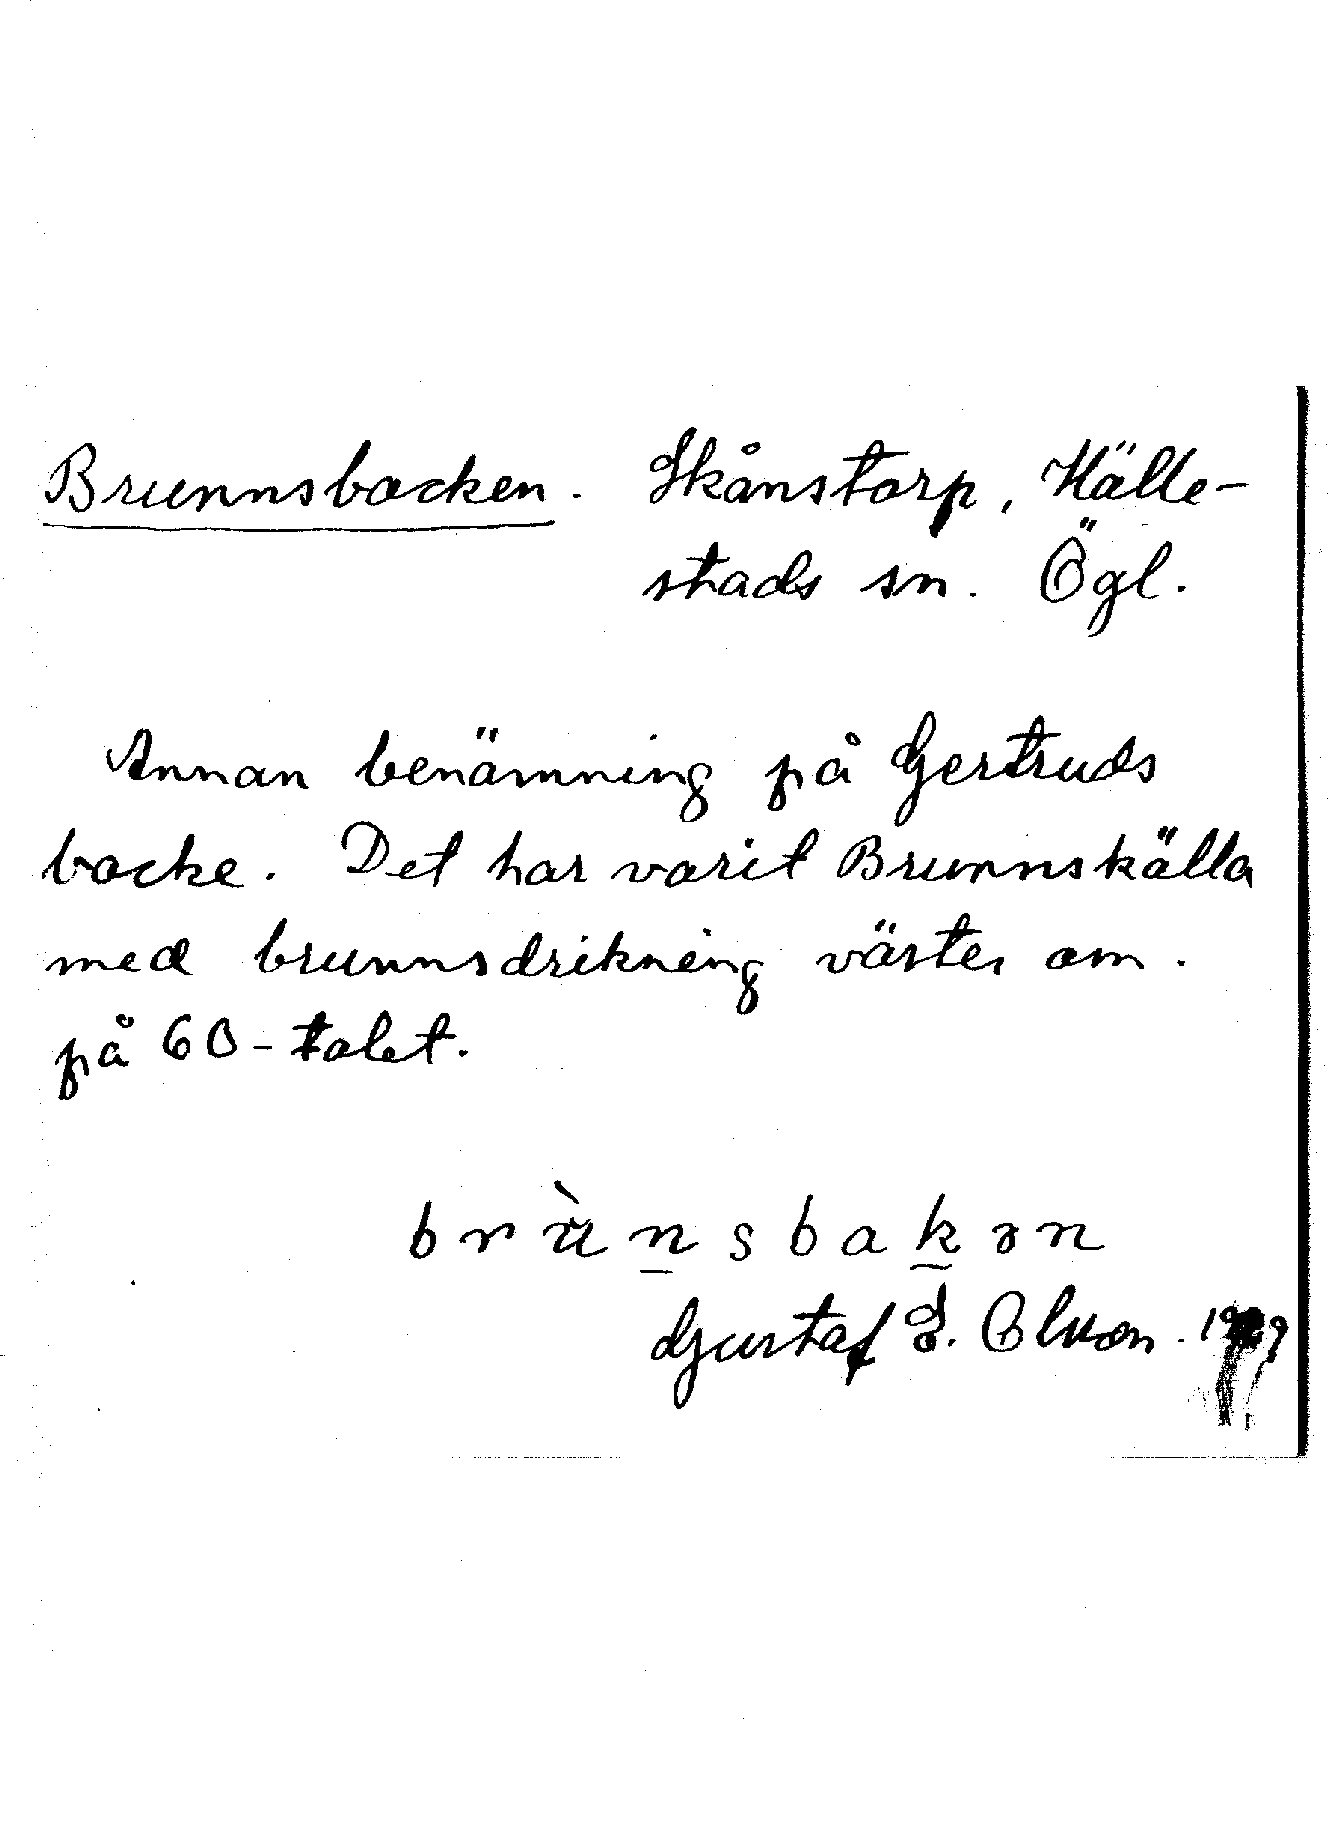 Brunnsbacken. Skånstorp, Hälle-
stads sn. Ögl.
Annan benämning på Gertruds
backe. Det har varit Brunnskälla
med brunnsdrikning väster om.
på 60-talet.
brùnsbakən
Gustaf S. Olson.